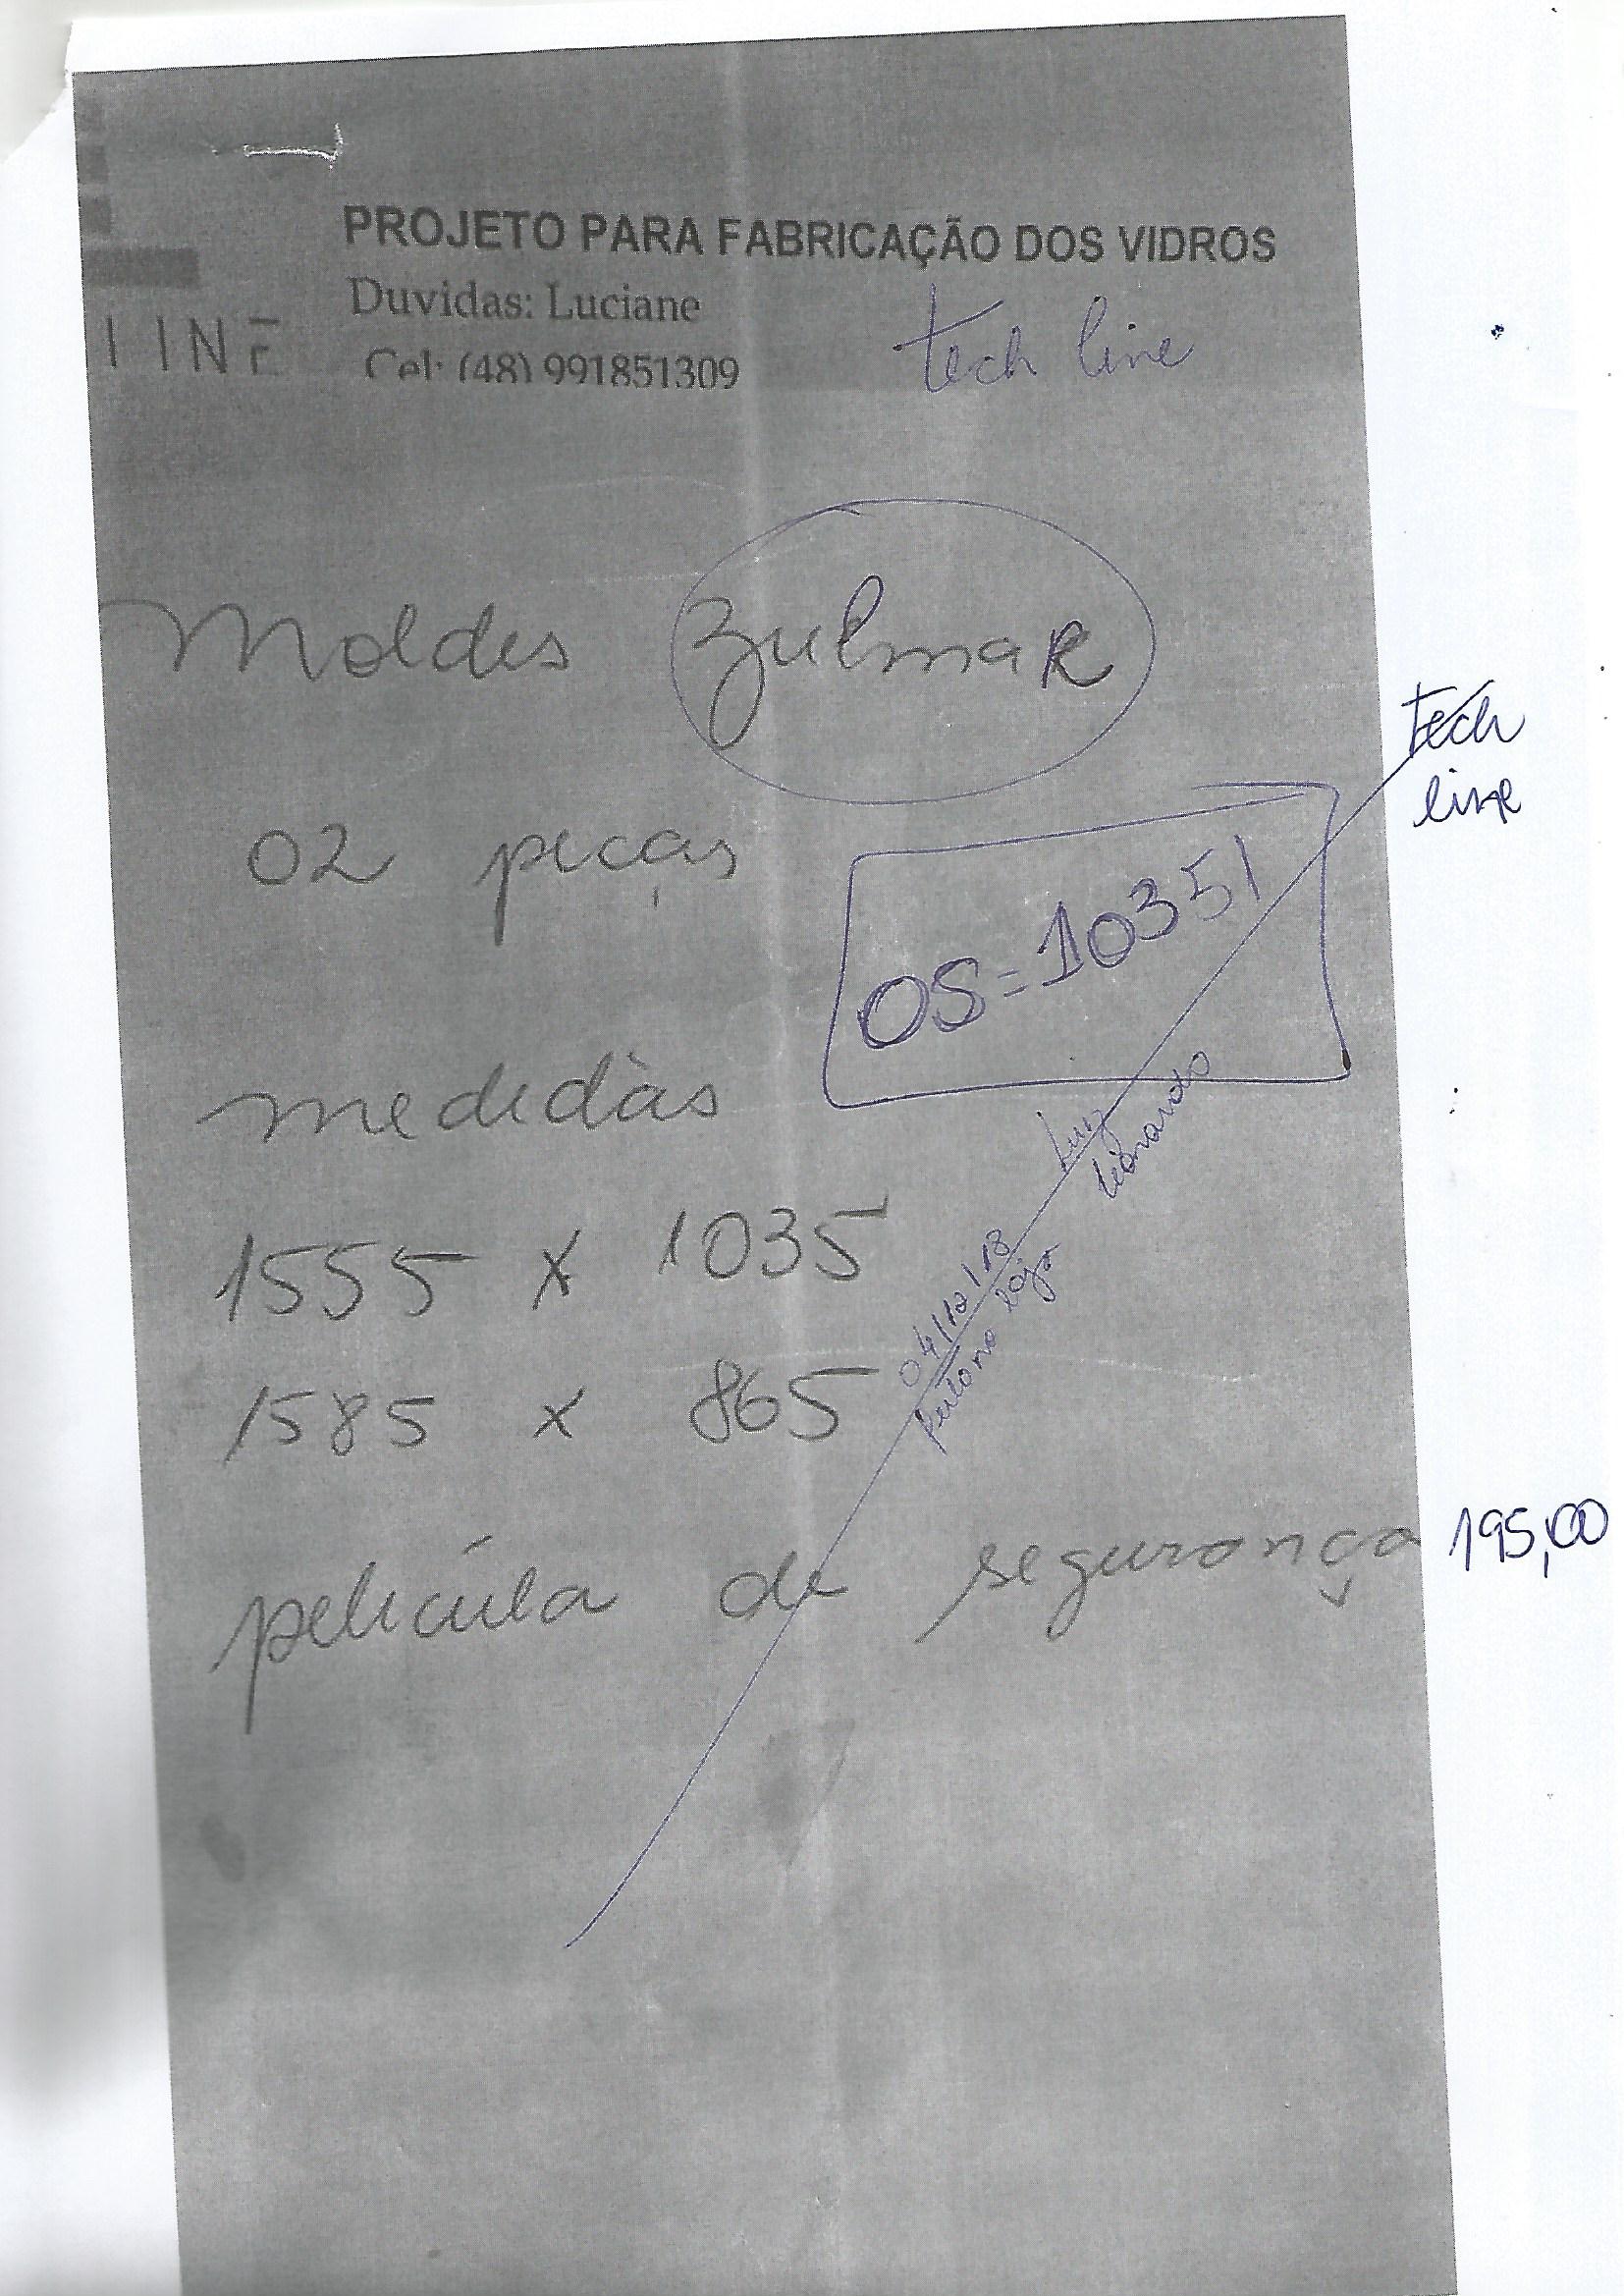 PROJETO PARA FABRICAÇÃO DOS VIDROS
Duvidas: Luciane
LINE
Cel: (48) 991851309
tech line
Moldes Zulmar
tech
line
02 peças
OS = 10351
medidas
Luiz
Leonardo
1555 x 1035
04/12/18
loja
1585 x 865
película de segurança 195,00